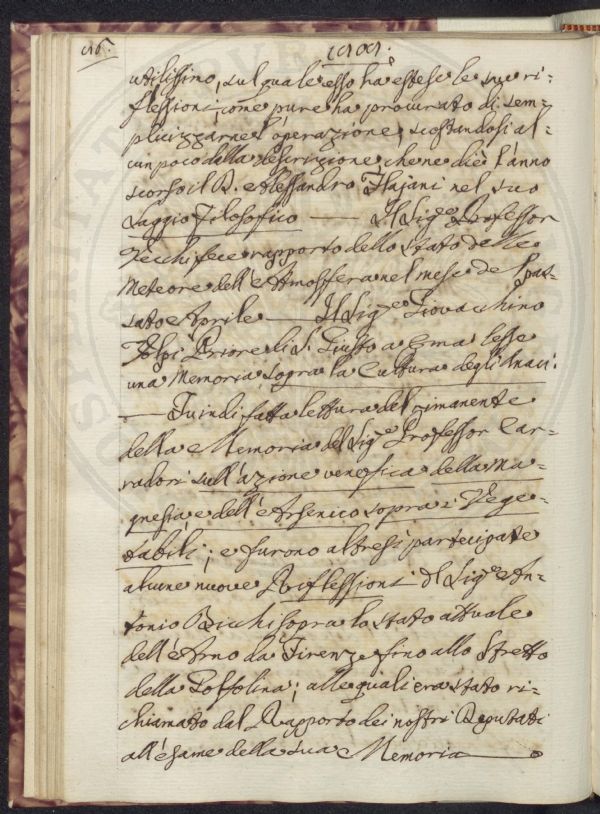 116.
utilissimo, sul quale esso ha estese le sue ri=
flessioni; come pure ha procurato di sem=
plicizzarne l'operazione, scostandosi al=
cun poco dalla descrizione, che ne diè l'anno
scorso il P. Alessandro Flajani nel suo
Saggio Filosofico —— Il Sig.e Professor
Zecchi fece rapporto dello stato delle
Meteore dell'Atmosfera nel mese del pas=
sato Aprile —— Il Sig.e Giovacchino
Priore di S. Giusto a lesse
una Memoria sopra la Cultura degli
—— Quindi fatta lettura del rimanente
della Memoria del Sig.e Professor Car=
radori sull'azione venefica della ma=
gnesia e dell'Arsenico sopra i Vege=
tabili; e furono altresì partecipate
alcune nuove Riflessioni del Sig.e An=
tonio sopra lo stato attuale
dell'Arno da Firenze fino allo Stretto
della Golfolina; alle quali era stato ri=
chiamato dal Rapporto dei nostri Deputati
all'esame della sua Memoria ——